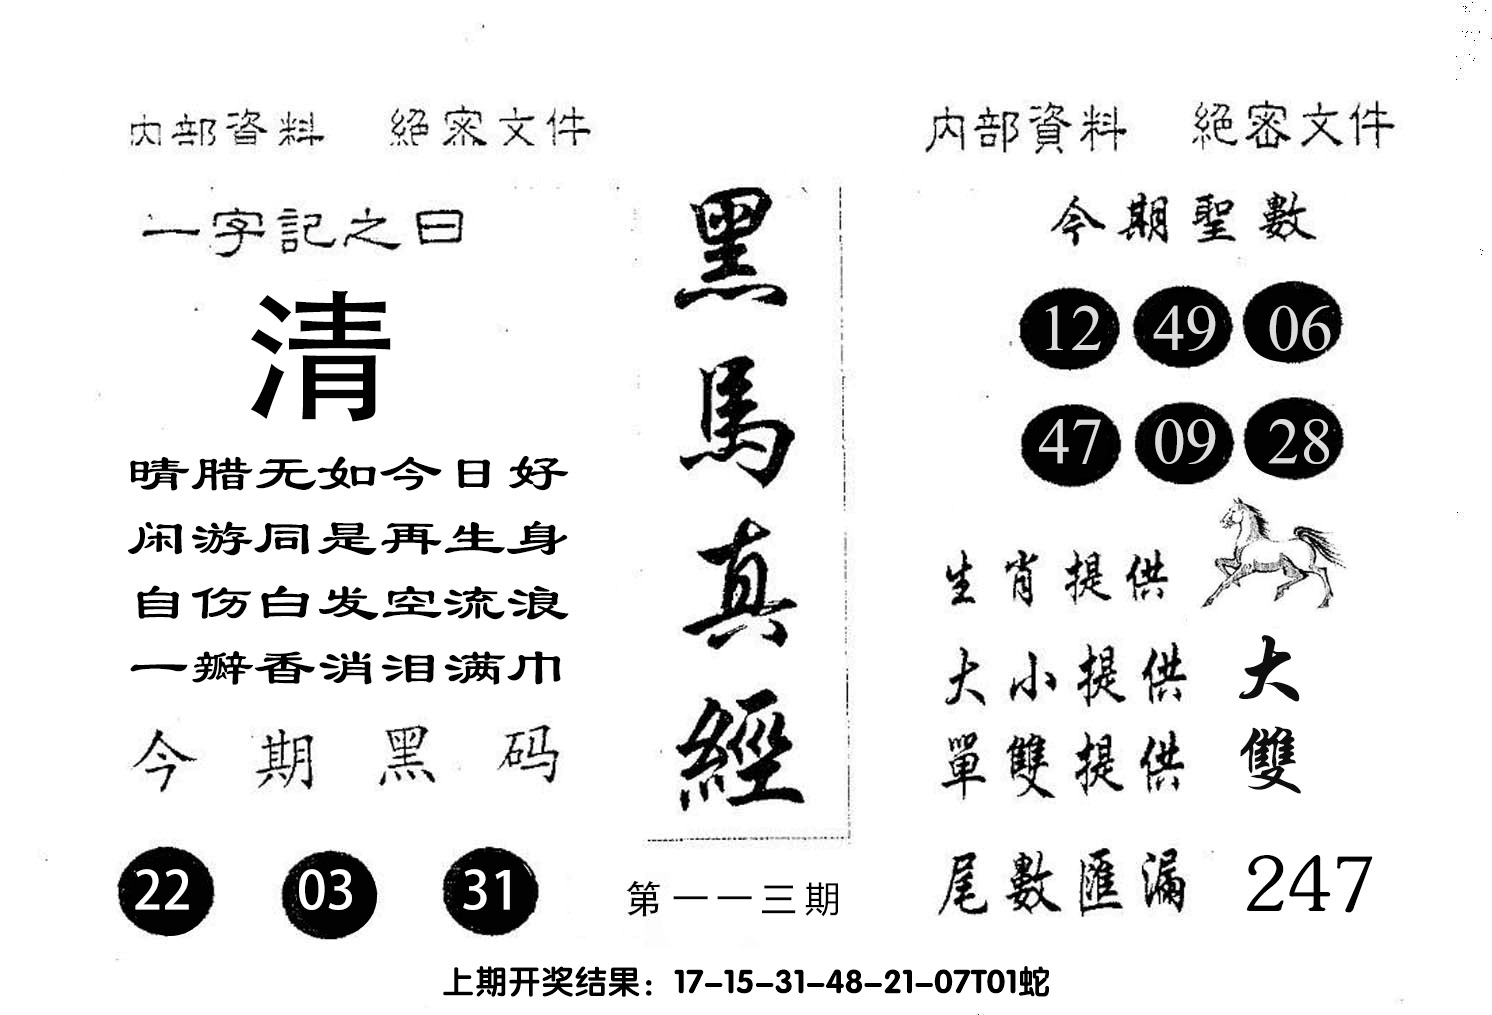 内部資料 絕密文件
一字記之曰
清
晴腊无如今日好
闲游同是再生身
自伤白发空流浪
一瓣香消泪满巾
今期黑码
22 03 31
黑馬真經
第一一三期
内部資料 絕密文件
今期聖數
12 49 06
47 09 28
生肖提供
大小提供 大
單雙提供 雙
尾數匯漏 247
上期开奖结果：17-15-31-48-21-07T01蛇